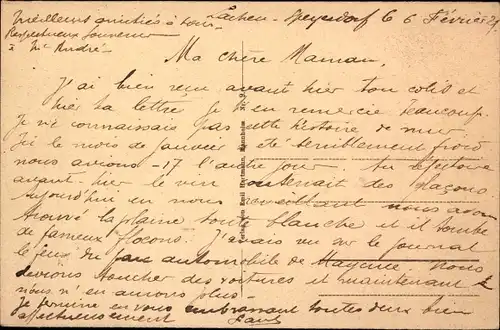 meilleurs amitiés à tous
Respectueux souvenir
à Mr André
Lachen - Speyerdorf le 6 Février 29
Ma chère Maman,
J'ai bien reçu avant hier ton colis et
hier ta lettre, je t'en remercie beaucoup.
Je ne connaissais pas cette histoire de mur
Ici le mois de janvier a été terriblement froid
nous avions -17 l'autre jour. Au réfectoire
avant-hier le vin contenait des glaçons
Aujourd'hui en nous réveillant nous avons
trouvé la plaine toute blanche et il tombe
de fameux flocons. J'avais vu sur le journal
le feu du parc automobile de Mayence. Nous
devions toucher des voitures et maintenant
nous n'en aurons plus.
Je termine en vous embrassant toutes deux bien
affectueusement
Paul
Verlag von Emil Hartmann, Mannheim